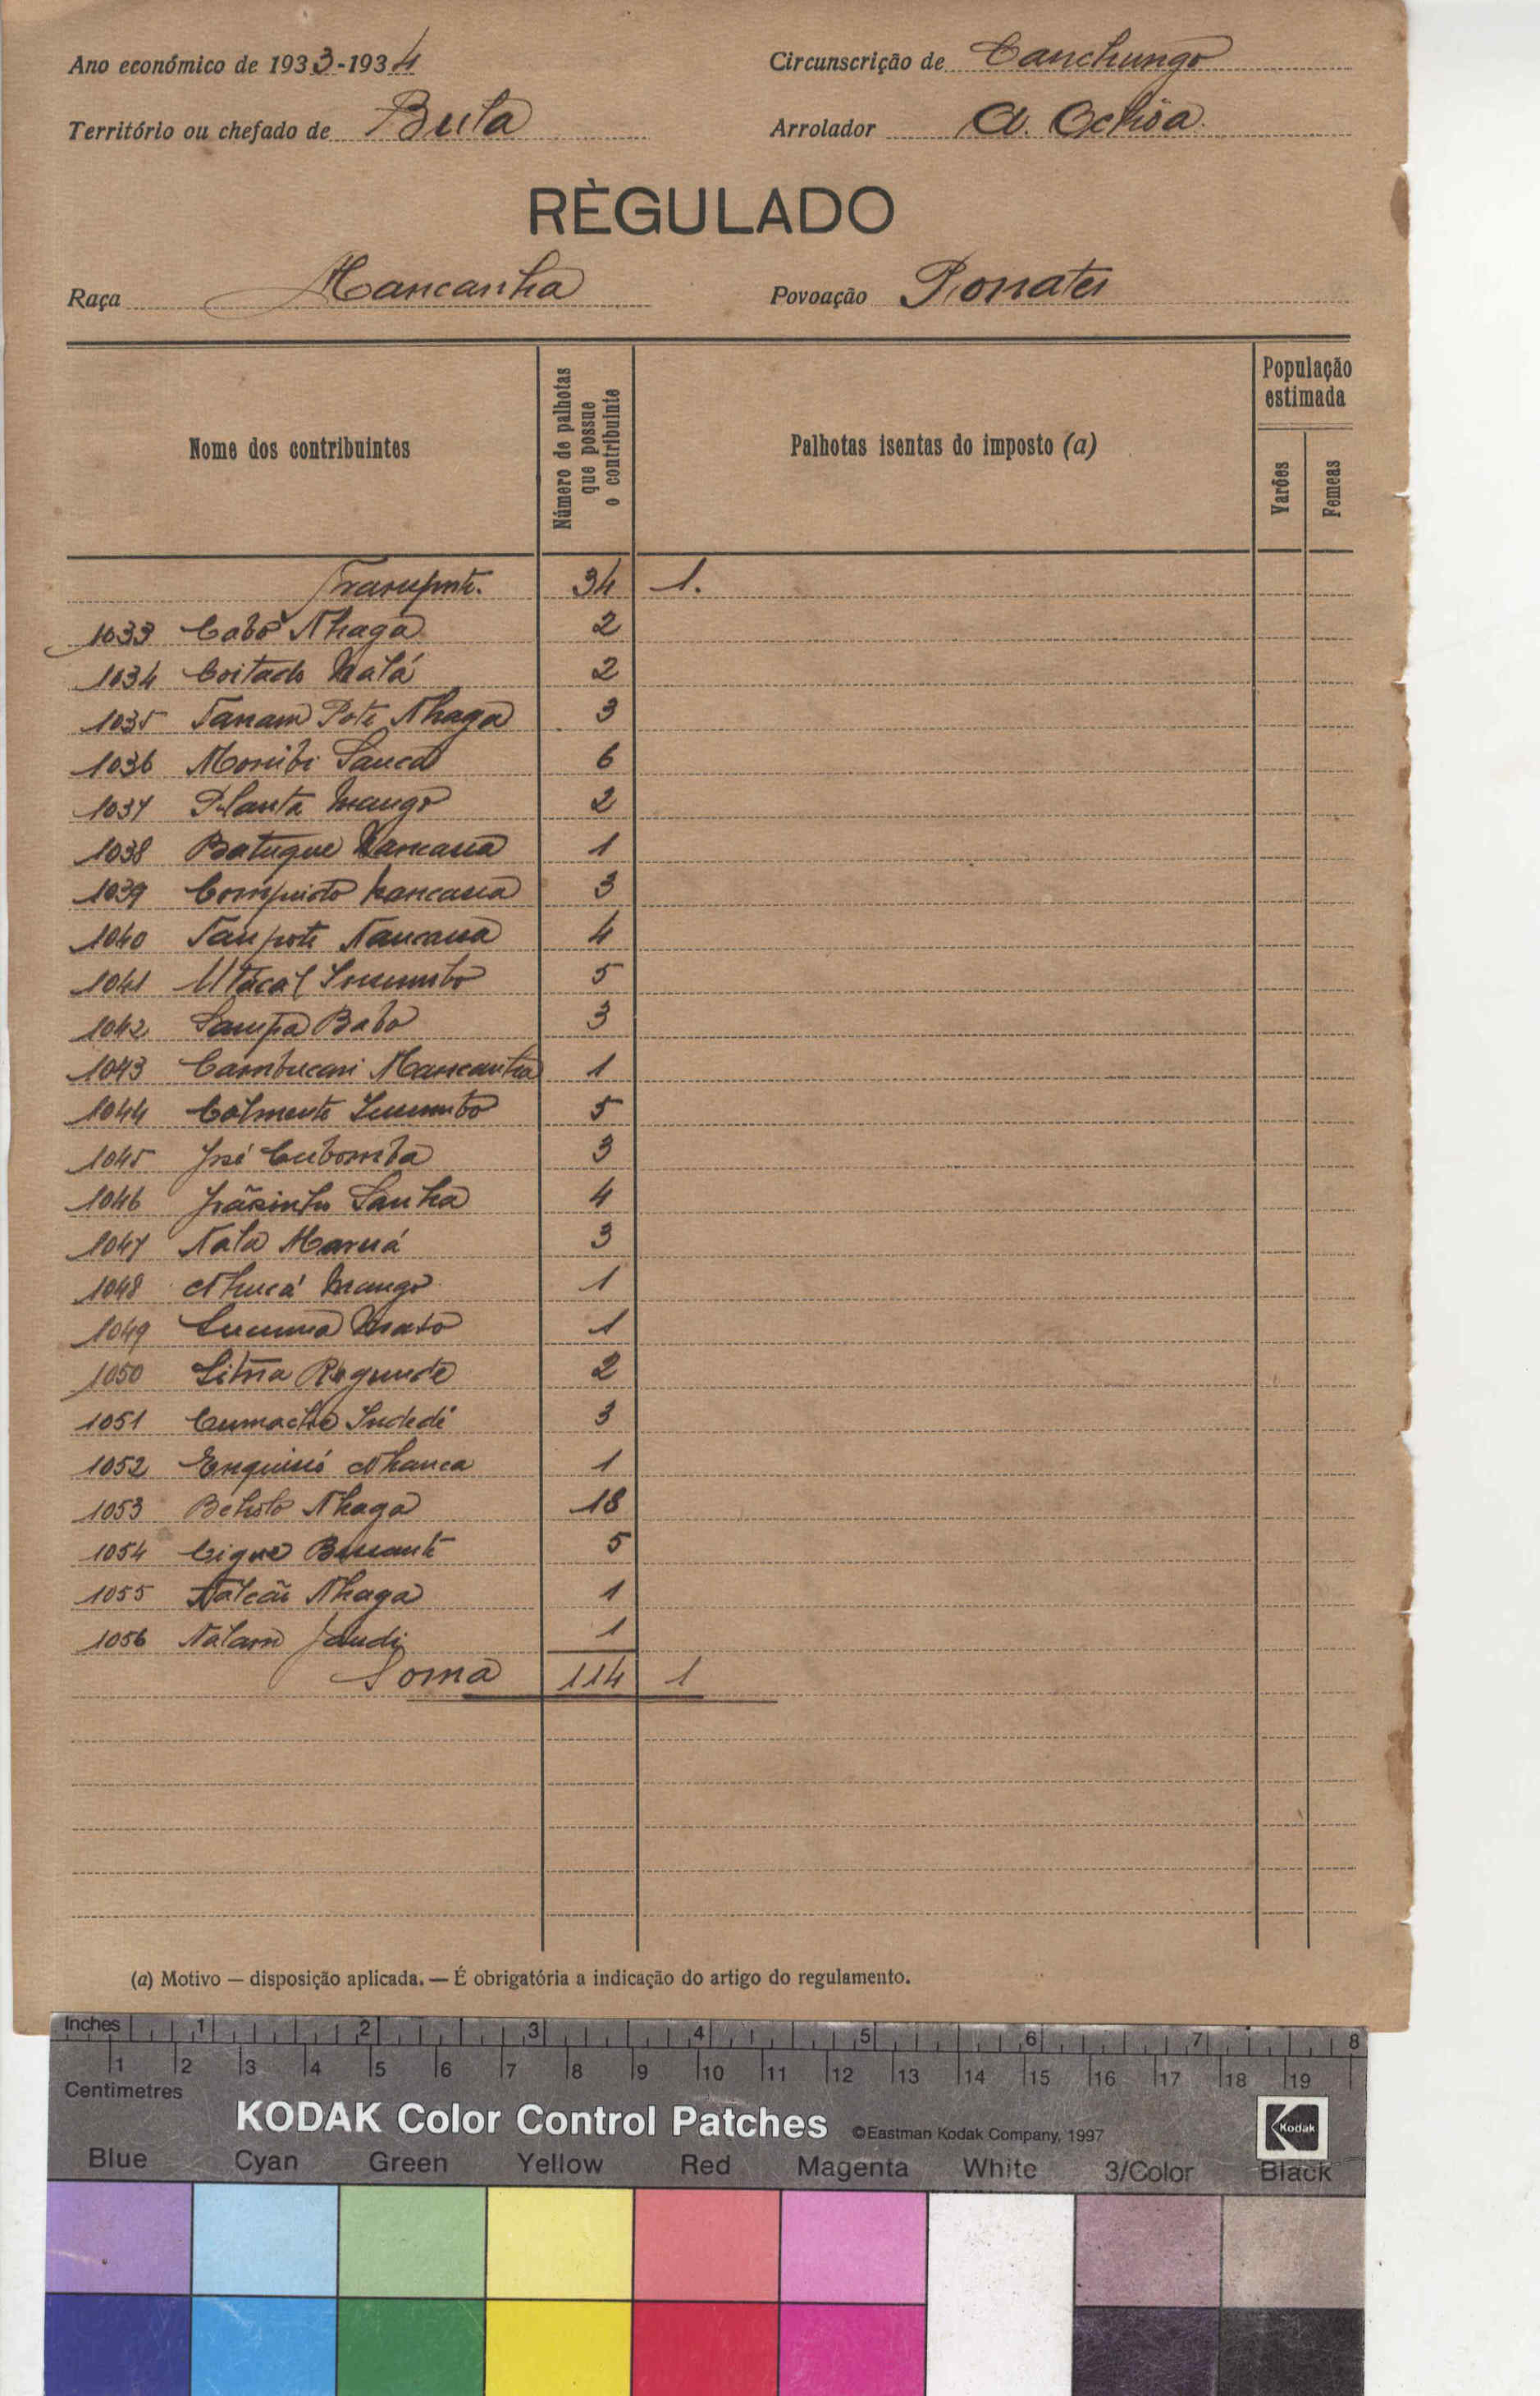 Ano económico de 1933-1934
Circunscrição de Canchungo
Território ou chefado de Bula
Arrolador A. Ochôa
RÈGULADO
Raça Mancanha
Povoação Ponate
Nome dos contribuintes
Número de palhotas que possue o contribuinte
Palhotas isentas do imposto (a)
População estimada
Varões
Femeas
Transporte. 34 1.
1033 Cabó Nhaga 2
1034 Coitado Natá 2
1035 Tanam Pote Nhaga 3
1036 Monibi Sanca 6
1037 Planta Mango 2
1038 Batuque Nancassa 1
1039 Comprido Nancassa 3
1040 4
1041 5
1042 Sampa Babo 3
1043 Mancanha 1
1044 5
1045 José 3
1046 Sanha 4
1047 Nala 3
1048 Mango 1
1049 1
1050 2
1051 3
1052 Nhanca 1
1053 Nhaga 18
1054 5
1055 Nhaga 1
1056 Nalam 1
Soma 114 1
(a) Motivo — disposição aplicada. — É obrigatória a indicação do artigo do regulamento.
Inches 1 2 3 4 5 6 7 8
1 2 3 4 5 6 7 8 9 10 11 12 13 14 15 16 17 18 19
Centimetres
KODAK Color Control Patches ©Eastman Kodak Company, 1997
Kodak
Blue Cyan Green Yellow Red Magenta White 3/Color Black